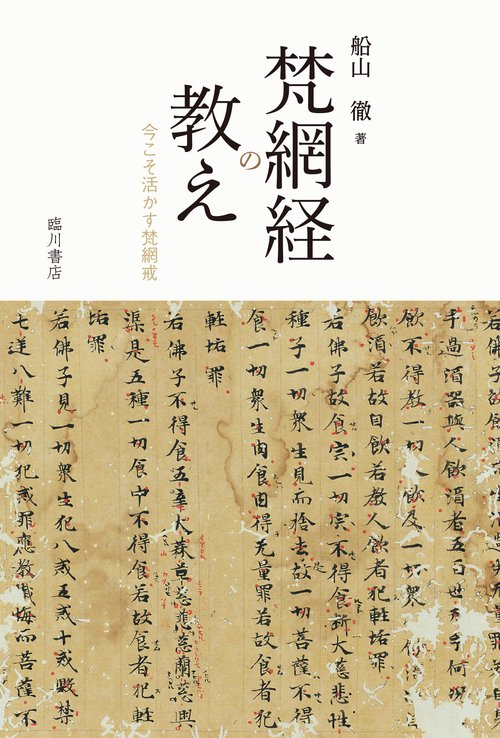 船山 徹 著
梵網経の
教え
今こそ活かす梵網戒
臨川書店
手過酒器與人飲酒者五百世无手何況
飲不得教一切人飲及一切衆
飲酒若故自飲若教人飲者犯輕垢罪
若佛子故食宍一切宍不得食断大慈悲性
種子一切衆生見而捨去故一切菩薩不得
食一切衆生肉食肉得无量罪若故食者犯
輕垢罪
若佛子不得食五辛大蒜茖葱慈葱蘭葱興
渠是五種一切食中不得食若故食者犯輕
垢罪
若佛子見一切衆生犯八戒五戒十戒毀禁
七逆八難一切犯戒罪應教懺悔而菩薩不